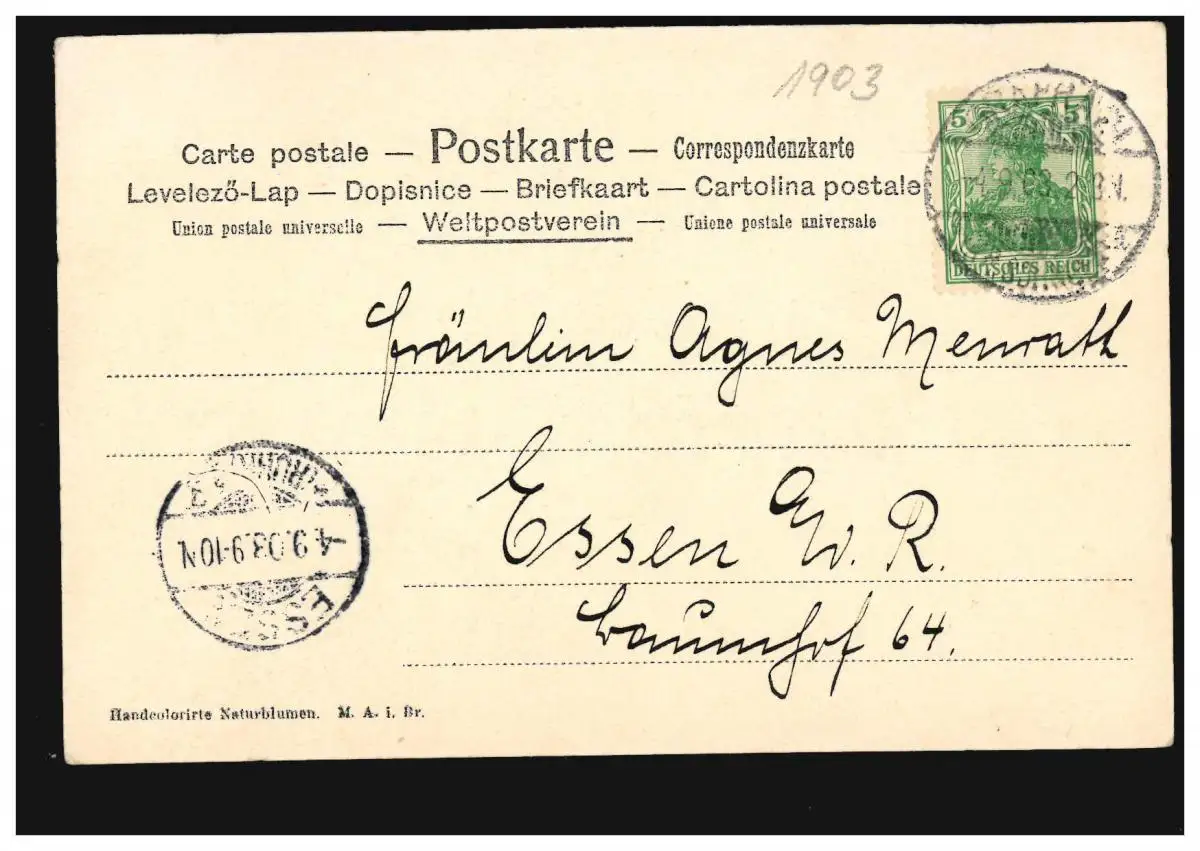 1903
5 5
Carte postale — Postkarte — Correspondenzkarte
Levelező-Lap — Dopisnice — Briefkaart — Cartolina postale
Union postale universelle — Weltpostverein — Unione postale universale
4.9.03.
DEUTSCHES REICH
Fräulein Agnes Menrath
Essen a/d. R.
4.9.03.9-10N.
(RUHR)
ESSEN
64.
Handcolorirte Naturblumen. M. A. i. Br.